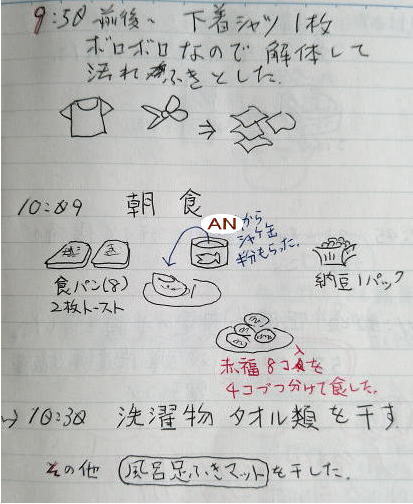 9:50 前後、下着シャツ1枚
ボロボロなので解体して
汚れふきとした。
10:09 朝食
ANから
シャケ缶
半分もらった。
食パン(8)
2枚トースト
納豆1パック
赤福8コ入を
4コづつ分けて食した。
→10:30 洗濯物 タオル類を干す
その他 風呂足ふきマットを干した。